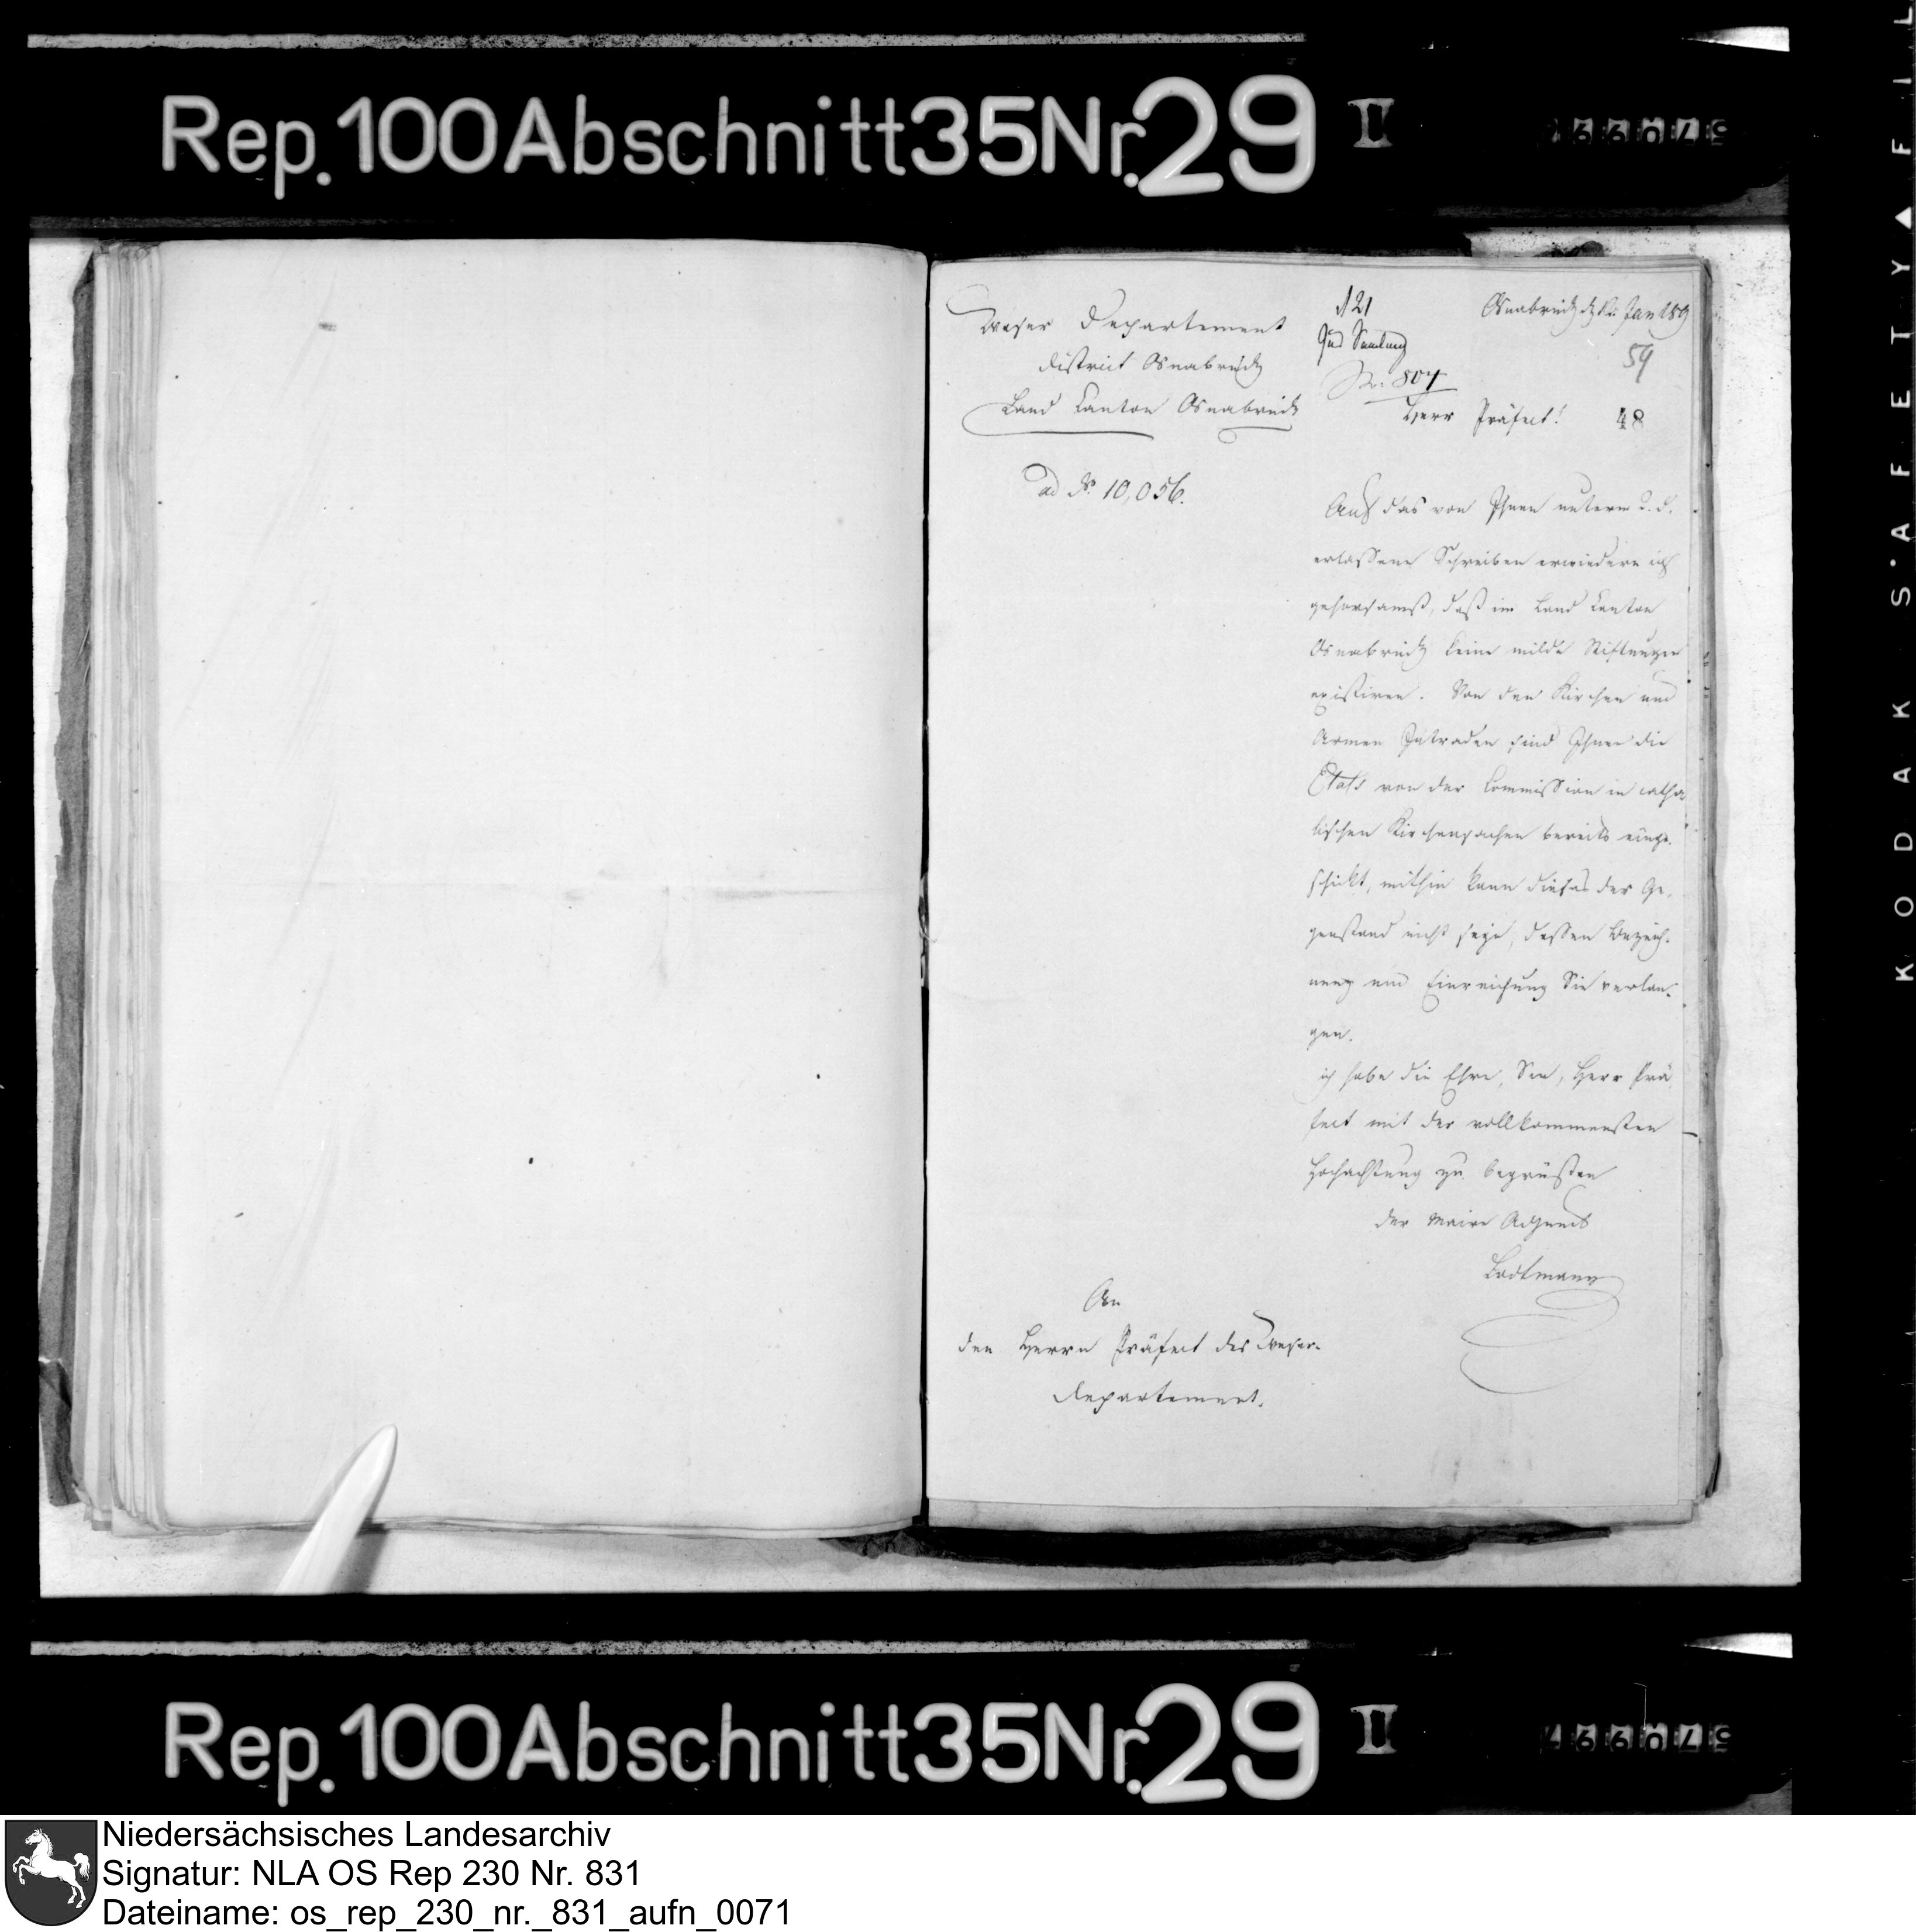 Rep. 100 Abschnitt 35 Nr. 29 II
Weser Departement
District Osnabrück
Land Canton Osnabrück
ad No. 10,056.
Osnabrück Jan 189
59
No: 804
Herr Präfect!
48
Auf das von Ihnen unterm 2. d.
erlassene Schreiben erwiedere ich
gehorsamst, daß im Land Canton
Osnabrück keine milde Stiftungen
existiren. Von den Kirchen und
Armen Intraden sind Ihnen die
Etats von der Commission in catho
lischen Kirchensachen bereits einge-
schickt, mithin kann dieses der Ge-
genstand nicht seyn, dessen Verzeich-
nung und Einreichung Sie verlan-
gen.
ich habe die Ehre, Sie, Herr Prä
fect mit der vollkommensten
Hochachtung zu begrüßen
der Maire Adjunct
Lodtmann
An
den Herrn Präfect des Weser-
Departement.
Rep. 100 Abschnitt 35 Nr. 29 II
KODAK S.A.F.E.T.Y▲FIL
Niedersächsisches Landesarchiv
Signatur: NLA OS Rep 230 Nr. 831
Dateiname: os_rep_230_nr._831_aufn_0071